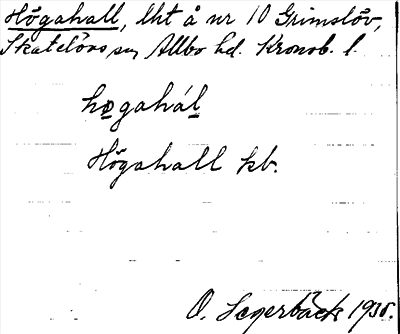 Högahall, lht å nr 10 Grimslöv,
Skatelövs sn Allbo hd. Kronob. l.
høgahál
Högahall kb.
O. Segerbäck 1935.